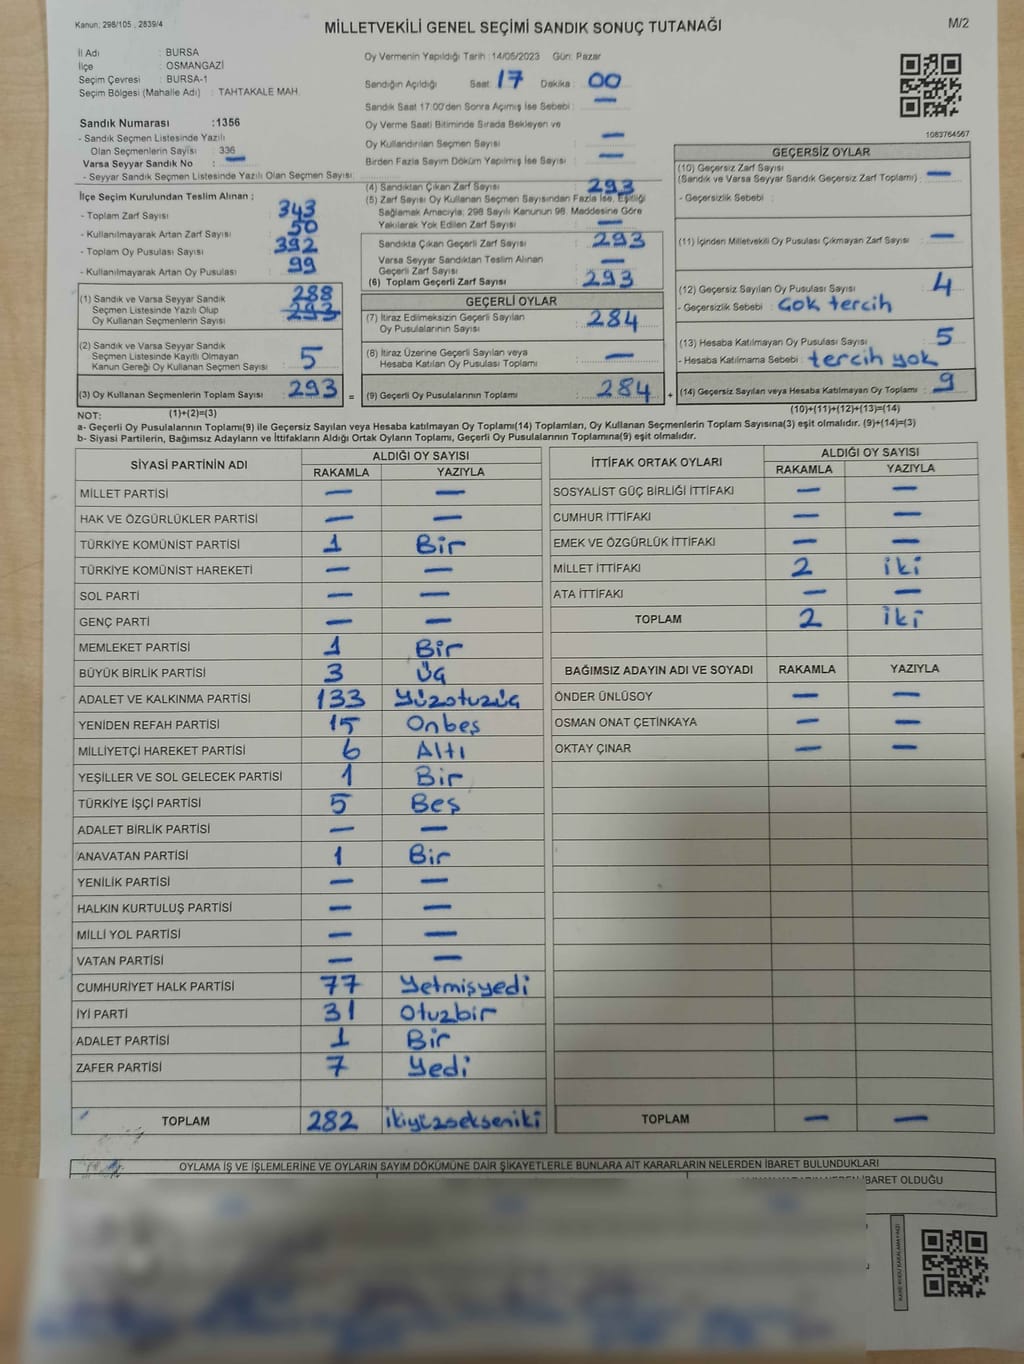 Kanun: 298/105 , 2839/4
MİLLETVEKİLİ GENEL SEÇİMİ SANDIK SONUÇ TUTANAĞI
M/2
İl Adı : BURSA
İlçe : OSMANGAZİ
Seçim Çevresi : BURSA-1
Seçim Bölgesi (Mahalle Adı) : TAHTAKALE MAH.
Sandık Numarası :1356
- Sandık Seçmen Listesinde Yazılı
Olan Seçmenlerin Sayısı : 336
Varsa Seyyar Sandık No : —
- Seyyar Sandık Seçmen Listesinde Yazılı Olan Seçmen Sayısı:
Oy Vermenin Yapıldığı Tarih :14/05/2023 Gün: Pazar
Sandığın Açıldığı Saat: 17 Dakika : 00
Sandık Saat 17:00'den Sonra Açımış İse Sebebi : —
Oy Verme Saati Bitiminde Sırada Bekleyen ve
Oy Kullandırılan Seçmen Sayısı : —
Birden Fazla Sayım Döküm Yapılmış İse Sayısı : —
1083764567
İlçe Seçim Kurulundan Teslim Alınan ;
- Toplam Zarf Sayısı : 343
- Kullanılmayarak Artan Zarf Sayısı : 50
- Toplam Oy Pusulası Sayısı : 392
- Kullanılmayarak Artan Oy Pusulası : 99
(1) Sandık ve Varsa Seyyar Sandık
Seçmen Listesinde Yazılı Olup
Oy Kullanan Seçmenlerin Sayısı : 288 293
(2) Sandık ve Varsa Seyyar Sandık
Seçmen Listesinde Kayıtlı Olmayan
Kanun Gereği Oy Kullanan Seçmen Sayısı : 5
(3) Oy Kullanan Seçmenlerin Toplam Sayısı : 293 =
(4) Sandıktan Çıkan Zarf Sayısı : 293
(5) Zarf Sayısı Oy Kullanan Seçmen Sayısından Fazla İse, Eşitliği
Sağlamak Amacıyla; 298 Sayılı Kanunun 98. Maddesine Göre
Yakılarak Yok Edilen Zarf Sayısı : —
Sandıkta Çıkan Geçerli Zarf Sayısı : 293
Varsa Seyyar Sandıktan Teslim Alınan
Geçerli Zarf Sayısı : —
(6) Toplam Geçerli Zarf Sayısı : 293
GEÇERLİ OYLAR
(7) İtiraz Edilmeksizin Geçerli Sayılan
Oy Pusulalarının Sayısı : 284
(8) İtiraz Üzerine Geçerli Sayılan veya
Hesaba Katılan Oy Pusulası Toplamı : —
(9) Geçerli Oy Pusulalarının Toplamı : 284 +
GEÇERSİZ OYLAR
(10) Geçersiz Zarf Sayısı
(Sandık ve Varsa Seyyar Sandık Geçersiz Zarf Toplamı) : —
- Geçersizlik Sebebi :
(11) İçinden Milletvekili Oy Pusulası Çıkmayan Zarf Sayısı : —
(12) Geçersiz Sayılan Oy Pusulası Sayısı : 4
- Geçersizlik Sebebi : Çok tercih
(13) Hesaba Katılmayan Oy Pusulası Sayısı : 5
- Hesaba Katılmama Sebebi : tercih yok
(14) Geçersiz Sayılan veya Hesaba Katılmayan Oy Toplamı : 9
NOT: (1)+(2)=(3)
(10)+(11)+(12)+(13)=(14)
a- Geçerli Oy Pusulaları Toplamı(9) ile Geçersiz Sayılan veya Hesaba katılmayan Oy Toplamı(14) Toplamları, Oy Kullanan Seçmenlerin Toplam Sayısına(3) eşit olmalıdır. (9)+(14)=(3)
b- Siyasi Partilerin, Bağımsız Adayların ve İttifakların Aldığı Ortak Oyların Toplamı, Geçerli Oy Pusulalarının Toplamına(9) eşit olmalıdır.
SİYASİ PARTİNİN ADI ALDIĞI OY SAYISI
RAKAMLA YAZIYLA
MİLLET PARTİSİ — —
HAK VE ÖZGÜRLÜKLER PARTİSİ — —
TÜRKİYE KOMÜNİST PARTİSİ 1 Bir
TÜRKİYE KOMÜNİST HAREKETİ — —
SOL PARTİ — —
GENÇ PARTİ — —
MEMLEKET PARTİSİ 1 Bir
BÜYÜK BİRLİK PARTİSİ 3 Üç
ADALET VE KALKINMA PARTİSİ 133 Yüzotuzüç
YENİDEN REFAH PARTİSİ 15 Onbeş
MİLLİYETÇİ HAREKET PARTİSİ 6 Altı
YEŞİLLER VE SOL GELECEK PARTİSİ 1 Bir
TÜRKİYE İŞÇİ PARTİSİ 5 Beş
ADALET BİRLİK PARTİSİ — —
ANAVATAN PARTİSİ 1 Bir
YENİLİK PARTİSİ — —
HALKIN KURTULUŞ PARTİSİ — —
MİLLİ YOL PARTİSİ — —
VATAN PARTİSİ — —
CUMHURİYET HALK PARTİSİ 77 Yetmişyedi
İYİ PARTİ 31 Otuzbir
ADALET PARTİSİ 1 Bir
ZAFER PARTİSİ 7 Yedi
TOPLAM 282 ikiyüzsekseniki
İTTİFAK ORTAK OYLARI ALDIĞI OY SAYISI
RAKAMLA YAZIYLA
SOSYALİST GÜÇ BİRLİĞİ İTTİFAKI — —
CUMHUR İTTİFAKI — —
EMEK VE ÖZGÜRLÜK İTTİFAKI — —
MİLLET İTTİFAKI 2 iki
ATA İTTİFAKI — —
TOPLAM 2 iki
BAĞIMSIZ ADAYIN ADI VE SOYADI RAKAMLA YAZIYLA
ÖNDER ÜNLÜSOY — —
OSMAN ONAT ÇETİNKAYA — —
OKTAY ÇINAR — —
TOPLAM — —
OYLAMA İŞ VE İŞLEMLERİNE VE OYLARIN SAYIM DÖKÜMÜNE DAİR ŞİKAYETLERLE BUNLARA AİT KARARLARIN NELERDEN İBARET BULUNDUKLARI
İBARET OLDUĞU